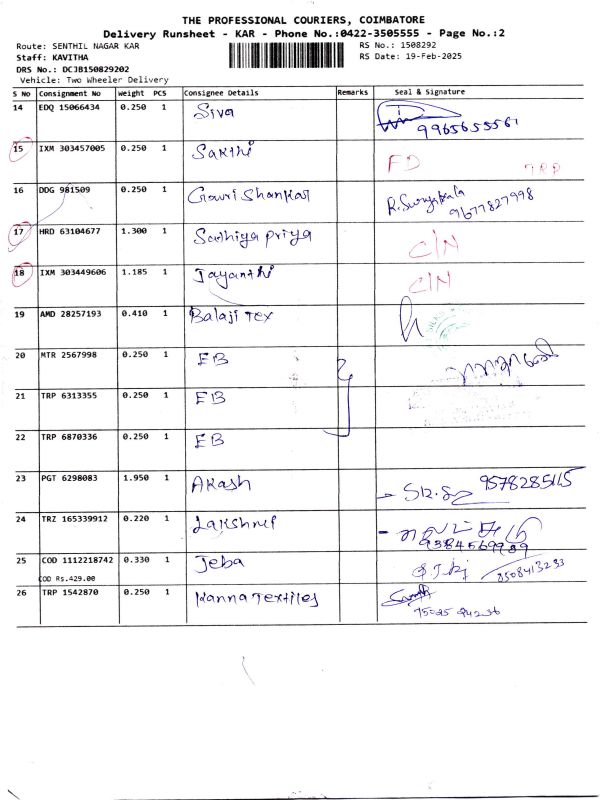 THE PROFESSIONAL COURIERS, COIMBATORE
Delivery Runsheet - KAR - Phone No.:0422-3505555 - Page No.:2
Route: SENTHIL NAGAR KAR
RS No.: 1508292
Staff: KAVITHA
RS Date: 19-Feb-2025
DRS No.: DCJB150829202
Vehicle: Two Wheeler Delivery
S No Consignment No Weight PCS Consignee Details Remarks Seal & Signature
14 EDQ 15066434 0.250 1 Siva 9965655561
15 IXM 303457005 0.250 1 Sakthi FD TRP
16 DDG 981509 0.250 1 Gowri Shankar 9677827998
17 HRD 63104677 1.300 1 Sadhiya Priya C/N
18 IXM 303449606 1.185 1 Jayanthi C/N
19 AMD 28257193 0.410 1 Balaji Tex
20 MTR 2567998 0.250 1 EB
21 TRP 6313355 0.250 1 EB
22 TRP 6870336 0.250 1 EB
23 PGT 6298083 1.950 1 Akash 9578285115
24 TRZ 165339912 0.220 1 Lakshmi 9384569939
25 COD 1112218742 0.330 1 Jeba 8508413233
COD Rs.429.00
26 TRP 1542870 0.250 1 Kanna Textiles